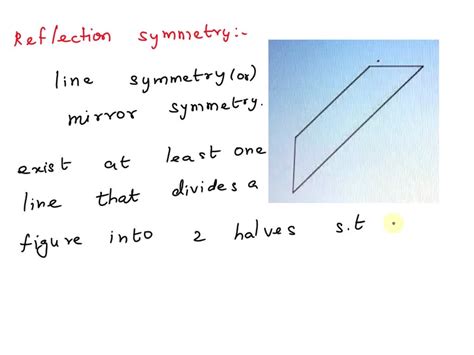 Reflection symmetry:-
line symmetry (or)
mirror symmetry.
exist at least one
line that divides a
figure into 2 halves s.t